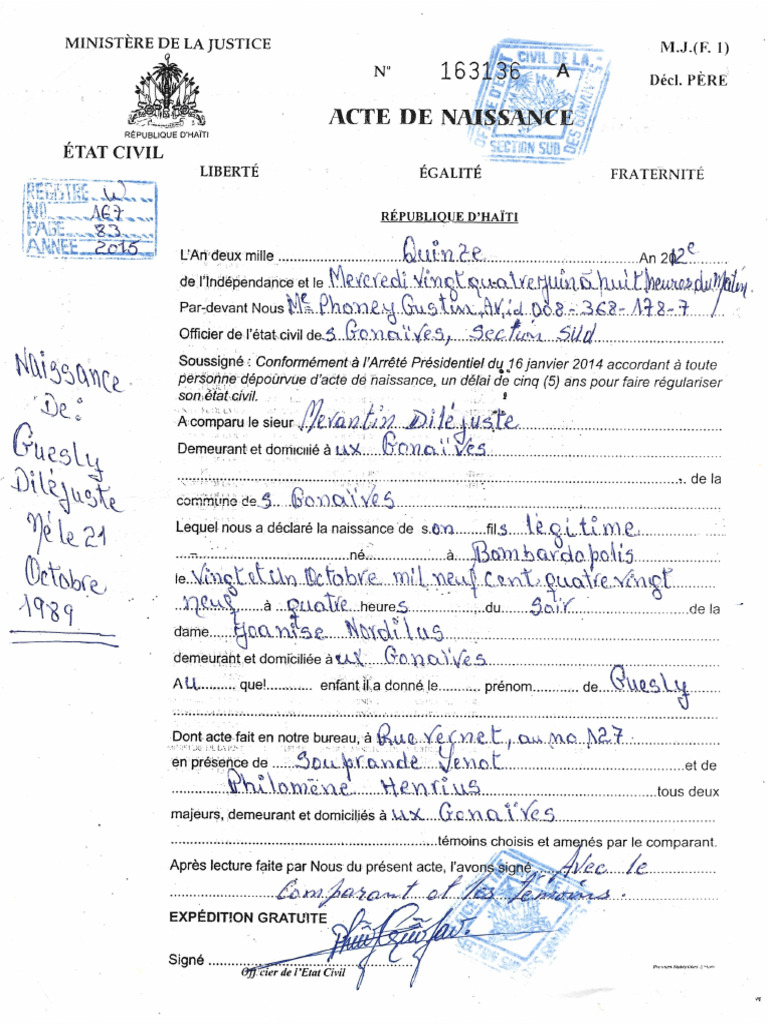 MINISTÈRE DE LA JUSTICE
M.J.(F. 1)
N° 163136 A
Décl. PÈRE
RÉPUBLIQUE D'HAÏTI
ACTE DE NAISSANCE
OFFICE D'ETAT CIVIL DE LA SECTION SUD DES GONAIVES
ÉTAT CIVIL
LIBERTÉ ÉGALITÉ FRATERNITÉ
REGISTRE W
NO 167
PAGE 83
ANNEE 2015
RÉPUBLIQUE D'HAÏTI
L'An deux mille Quinze An 212e
de l'Indépendance et le Mercredi vingt quatre juin à huit heures du Matin
Par-devant Nous Me Phoney Gustin, Av, id 008-368-178-7
Officier de l'état civil des Gonaïves, Section Sud
Soussigné : Conformément à l'Arrêté Présidentiel du 16 janvier 2014 accordant à toute
personne dépourvue d'acte de naissance, un délai de cinq (5) ans pour faire régulariser
son état civil.
A comparu le sieur Merantin Diléjuste
Demeurant et domicilié à ux Gonaïves
de la
commune des Gonaïves
Lequel nous a déclaré la naissance de son fils légitime
né à Bombardopolis
le vingt et Un Octobre mil neuf cent quatre vingt
neuf à quatre heures du Soir de la
dame Joanise Nordilus
demeurant et domiciliée à ux Gonaïves
AU quel enfant il a donné le prénom de Guesly
Dont acte fait en notre bureau, à Rue Vernet, au no 127
en présence de Souprande Venot et de
Philomène Henrius tous deux
majeurs, demeurant et domiciliés à ux Gonaïves
témoins choisis et amenés par le comparant.
Après lecture faite par Nous du présent acte, l'avons signé Avec le
Comparant et les témoins.
EXPÉDITION GRATUITE
Signé
Officier de l'Etat Civil
Naissance
De:
Guesly
Diléjuste
Né le 21
Octobre
1989